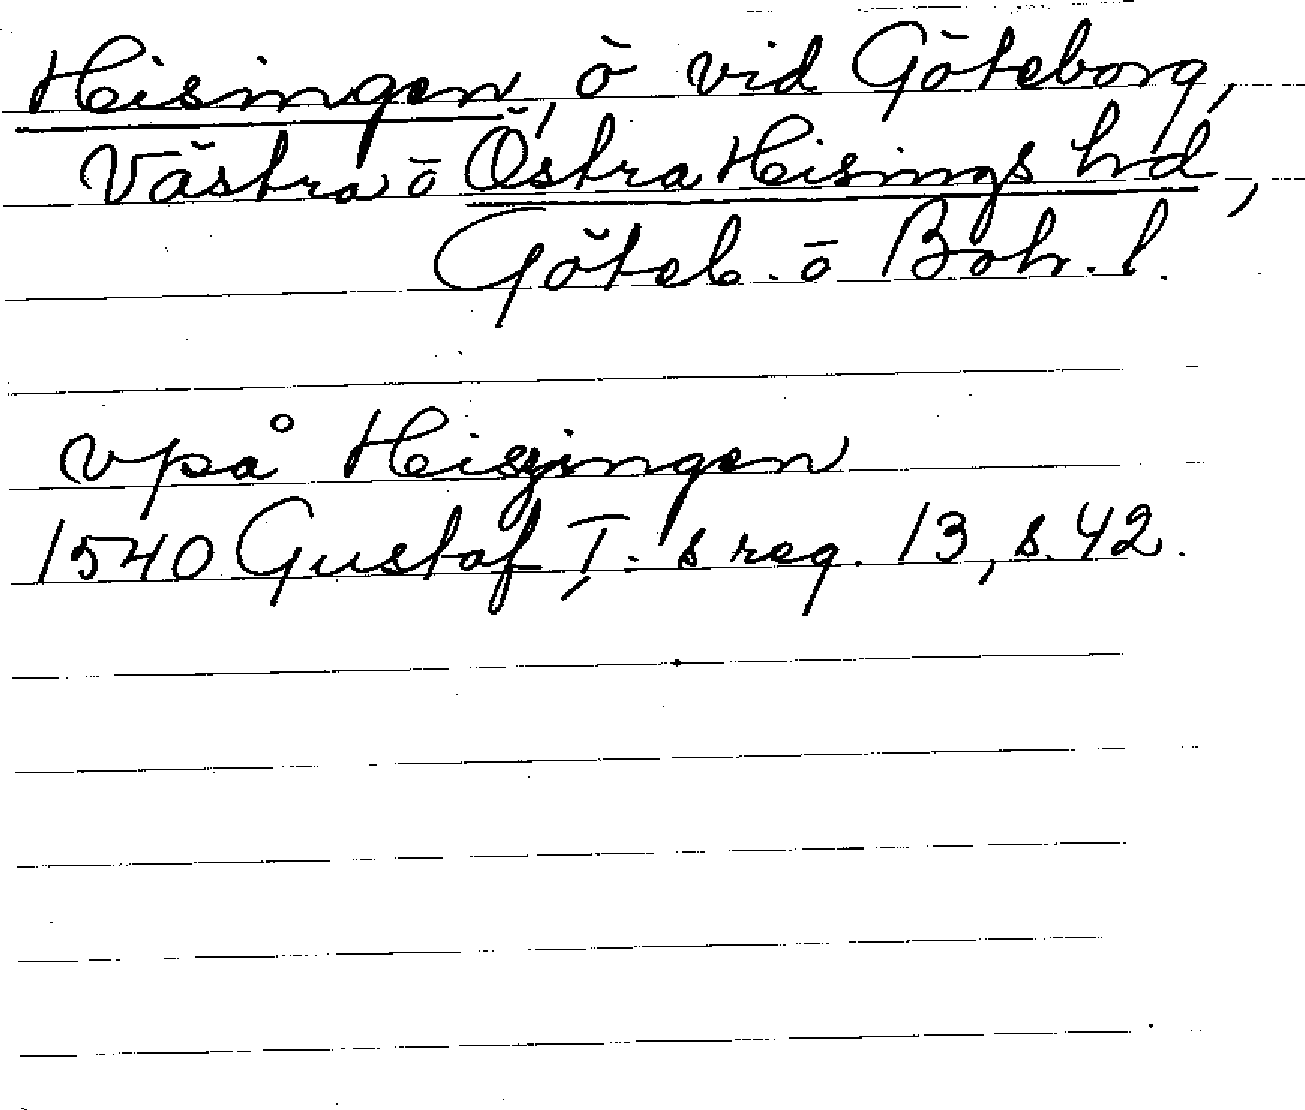 Hisingen, ö vid Göteborg,
Västra o Östra Hisings hd,
Göteb. o Boh. l.
vpå Hiszingen
1540 Gustaf I:s reg. 13, s. 42.